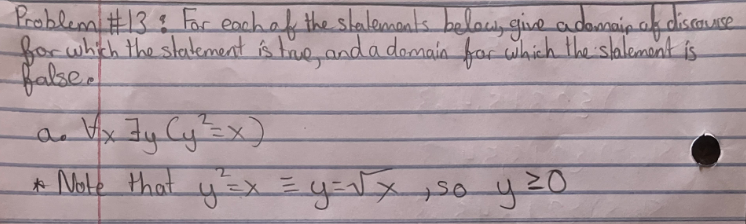 Problem #13: For each of the statements below, give a domain of discourse
for which the statement is true, and a domain for which the statement is
false.
a. ∀x ∃y (y²=x)
* Note that y²=x ≡ y=√x, so y ≥0